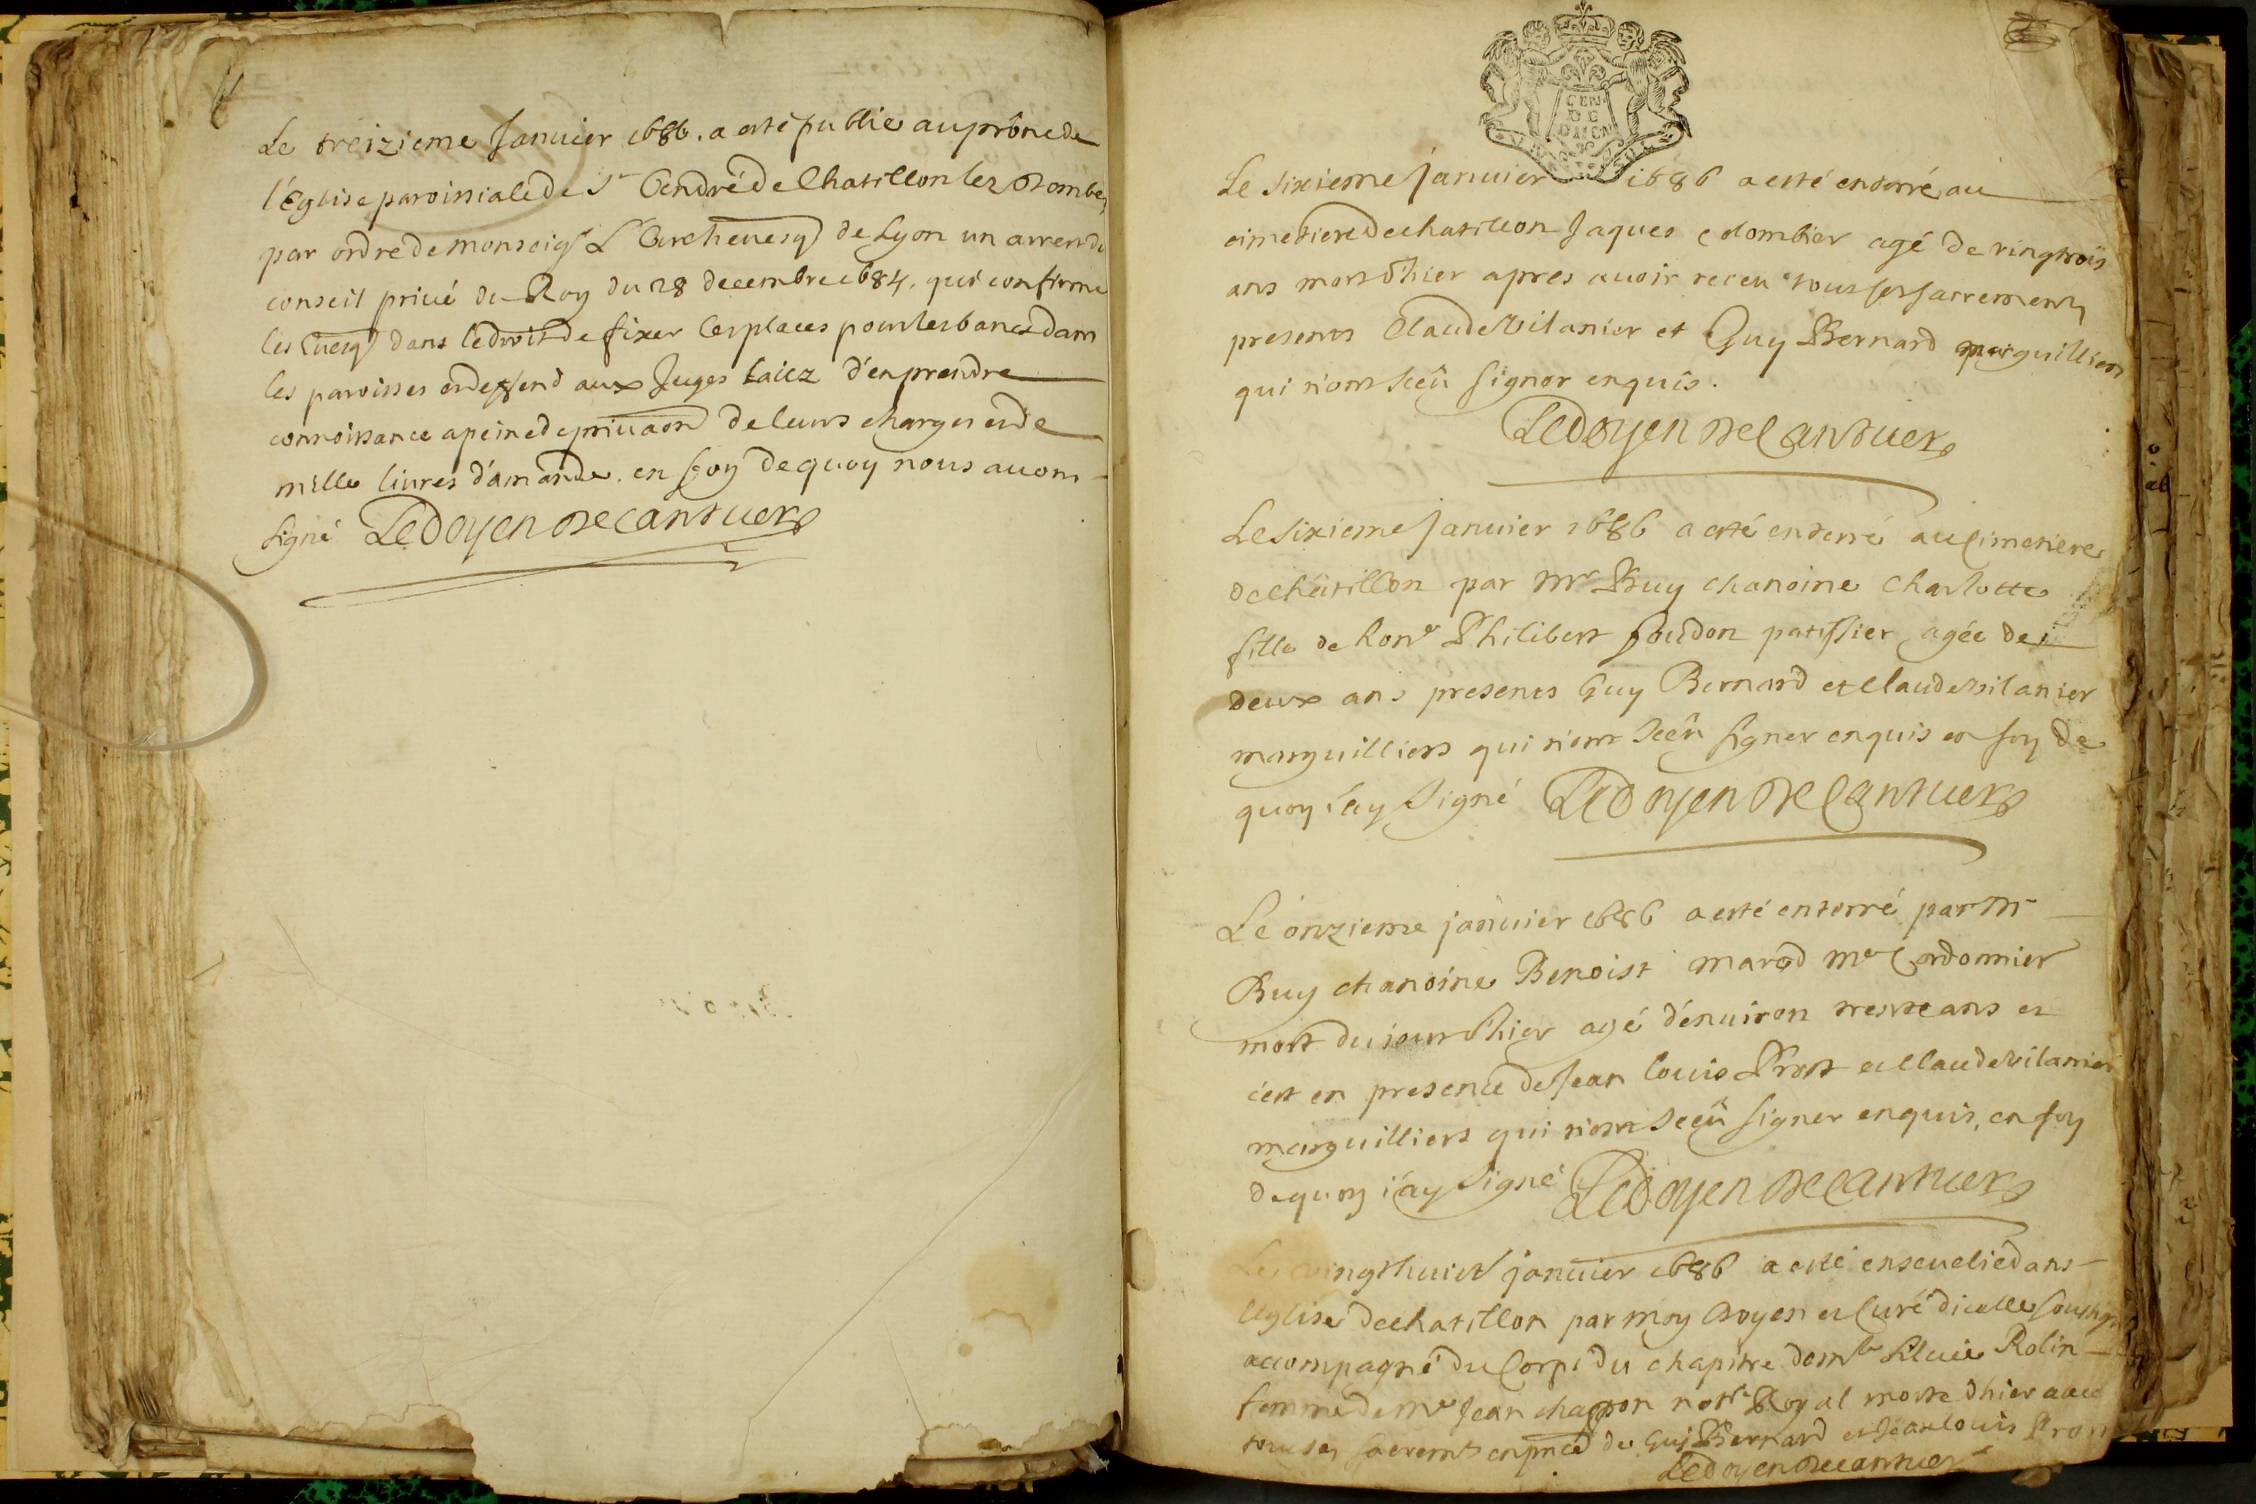 Le treizieme Januier 1686. a esté publié au prône de
l'Eglise paroissiale de St André de Chatillon lez Dombes
par ordre de monseigr L'Archeuesq de Lyon un arrest du
conseil priué du Roy du 28 decembre 1684. qui confirme
les Euesq dans le droit de fixer les places pour les bancs dans
les paroisses et deffend aux Juges laicz d'en prendre
connoissance a peine de priuaon de leurs charges et de
mille liures d'amande. en foy de quoy nous auons
signé Le Doyen De
GEN
DE
DIJON
Le sixieme januier 1686 a esté enterré au
cimetiere de chatillon Jaques colombier agé de vingtrois
ans mort d'hier apres auoir receu tous ses sacrements
presents Claude Vilanier et Guy Bernard marguilliers
qui n'ont sceû signer enquis.
Le Doyen De
Le sixieme januier 1686 a esté enterré au Cimetiere
de châtillon par Mr Buy chanoine Charlotte
fille de honê Philibert patissier agée de
deux ans presents Guy Bernard et Claude Vilanier
marguilliers qui n'ont sceû signer enquis en foy de
quoy i'ay signé Le Doyen De
Le onzieme januier 1686 a esté enterré par Mr
Buy chanoine Benoist Me Cordonnier
mort du iour d'hier agé d'enuiron trente ans et
c'est en presence de Jean Louis Prost et Claude Vilanier
marguilliers qui n'ont sceû signer enquis, en foy
de quoy i'ay signé Le Doyen De
Le vingthuict januier 1686 a esté enseuelie dans
l'eglise de chatillon par moy Doyen et Curé d'icelle
accompagné du Corps du chapitre Rolin
femme de Me Jean notre Royal morte d'hier auec
tous ses sacremts en pnce de Guy Bernard et Jean louis
Le Doyen De